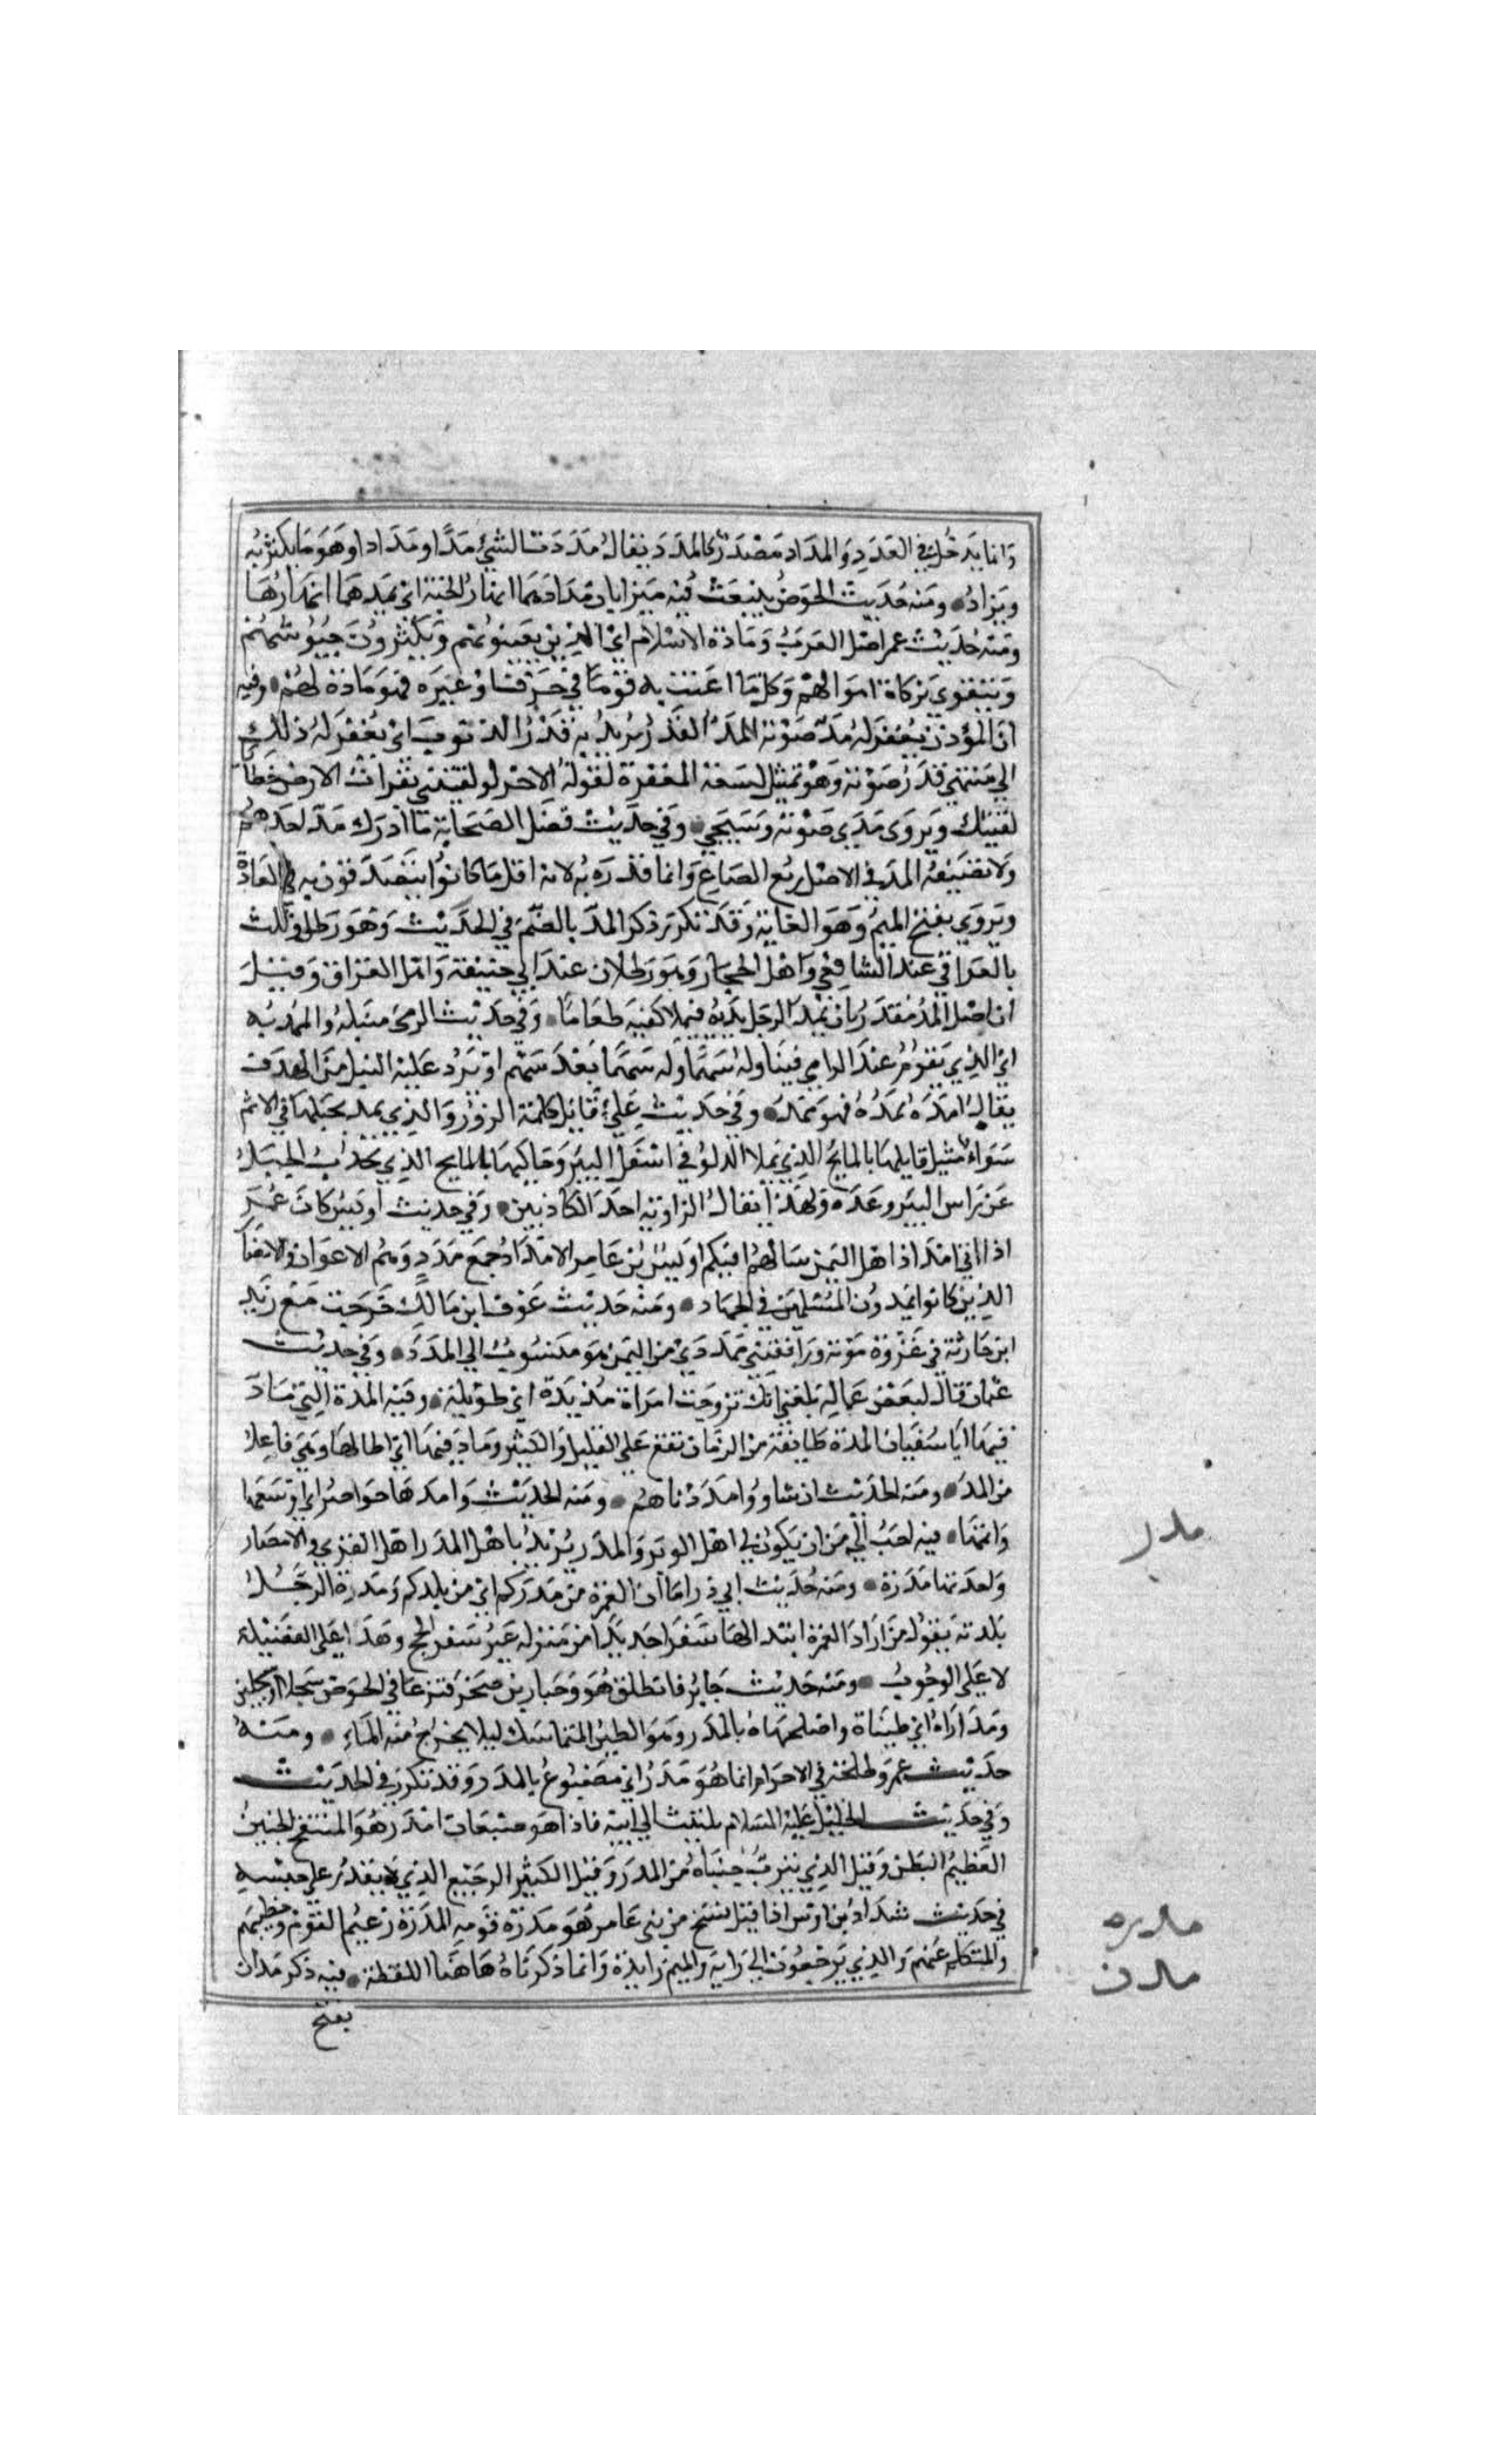 وانما يدخل في العدد والمداد مصدر كالمدد يقال مددت الشئ مدا ومدادا وهو ما يكثر به
ويزاد ومنه حديث الحوض ينبعث فيه ميزابان مدادهما انهار الجنة اي يمدهما انهارها
ومنه حديث عمر اصل العرب ومادة الاسلام اي الذين يعينونهم ويكثرون جيوشهم
ويتقوي بزكاة اموالهم وكل ما اعنت به قوما في حرب او غيره فهو مادة لهم وفيه
ان المؤذن يغفر له مد صوته المد القدر يريد به قدر الذنوب اي يغفر له ذلك
الي منتهي قدر صوته وهو تمثيل لسعة المغفرة لقوله الاخر لو لقيتني بقراب الارض خطايا
لقيتك ويروى مدى صوته وسيجي وفي حديث فضل الصحابة ما ادرك مد احدهم
ولا نصيفه المد في الاصل ربع الصاع وانما قدره به لانه اقل ما كانوا يتصدقون به في العادة
ويروي بفتح الميم وهو الغاية وقد تكرر ذكر المد بالضم في الحديث وهو رطل وثلث
بالعراقي عند الشافعي واهل الحجاز وهو رطلان عند ابي حنيفة واهل العراق وقيل
ان اصل المد مقدر بان يمد الرجل يديه فيملا كفيه طعاما وفي حديث الرمي منبله والممد به
اي الذي يقوم عند الرامي فيناوله سهما وله سهما بعد سهم او يرد عليه النبل من الهدف
يقال امده يمده فهو ممد وفي حديث علي قايل كلمة الزور والذي يمد بحبلها في الاثم
سواء مثل قايلها بالمايح الذي يملا الدلو في اسفل البير وحاكيها بالمايح الذي يجذب الحبل
عن راس البير وعده ولهذا يقال الراوية احد الكاذبين وفي حديث اويس كان عمر
اذا اتي امداد اهل اليمن سالهم افيكم اويس بن عامر الامداد جمع مدد وهم الاعوان والانصار
الذين كانوا يمدون المسلمين في الجهاد ومنه حديث عوف ابن مالك خرجت مع زيد
ابن حارثة في غزوة موتة ورافقني مددي من اليمن هو منسوب الي المدد وفي حديث
عثمان قال لبعض عماله بلغني انك تزوجت امراة مديدة اي طويلة وفيه المدة التي ماد
فيها ابا سفيان المدة طايفة من الزمان تقع علي القليل والكثير وماد فيها اي اطالها وهي فاعل
من المد ومنه الحديث ان شاووا مددناهم ومنه الحديث وامدها خواصر اي اوسعها
واتمها فيه احب الي من ان يكون لي اهل الوبر والمدر يريد باهل المدر اهل القري والامصار
واحدتها مدرة ومنه حديث ابي ذر اما ان العمرة من مدركم اي من بلدكم ومدرة الرجل
بلدته يقول من اراد العمرة ابتدا لها سفرا جديدا من منزله غير سفر الحج وهذا علي الفضيلة
لا علي الوجوب ومنه حديث جابر فانطلق هو وجبار بن صخر فنزعا في الحوض سجلا او سجلين
ومدراه اي طيناه واصلحاه بالمدر وهو الطين المتماسك ليلا يخرج منه الماء ومنه
حديث عمر وطلحة في الاحرام انما هو مدر اي مصبوغ بالمدر وقد تكرر في الحديث
وفي حديث الخليل عليه السلام يلتفت الي ابيه فاذا هو ضبعان امدر هو المنتفخ الجنبين
العظيم البطن وقيل الذي تترب جنباه من المدر وقيل الكثير الرجيع الذي لا يقدر علي حبسه
في حديث شداد بن اوس اذا قبل شيخ من بني عامر هو مدرة قومه المدرة زعيم القوم وخطيبهم
والمتكلم عنهم والذي يرجعون الي رايه والميم زايدة وانما ذكرناه هاهنا اللفظة فيه ذكر مدان
بفتح
مدر
مدره
مدن